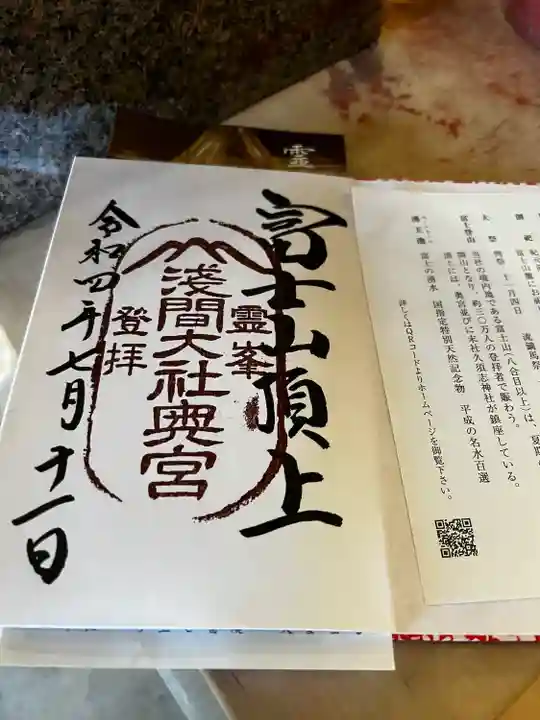 富士山頂上
霊峯
浅間大社奥宮
登拝
令和四年七月十一日
霊
大祭 例祭 十一月四日 流鏑馬祭
富士登山 当社の境内地である富士山(八合目以上)は、夏期
開山となり、約三〇万人の登拝者で賑わう。
頂上には、奥宮並びに末社久須志神社が鎮座している。
湧玉池 富士の湧水 国指定特別天然記念物 平成の名水百選
詳しくはQRコードよりホームページを御覧下さい。